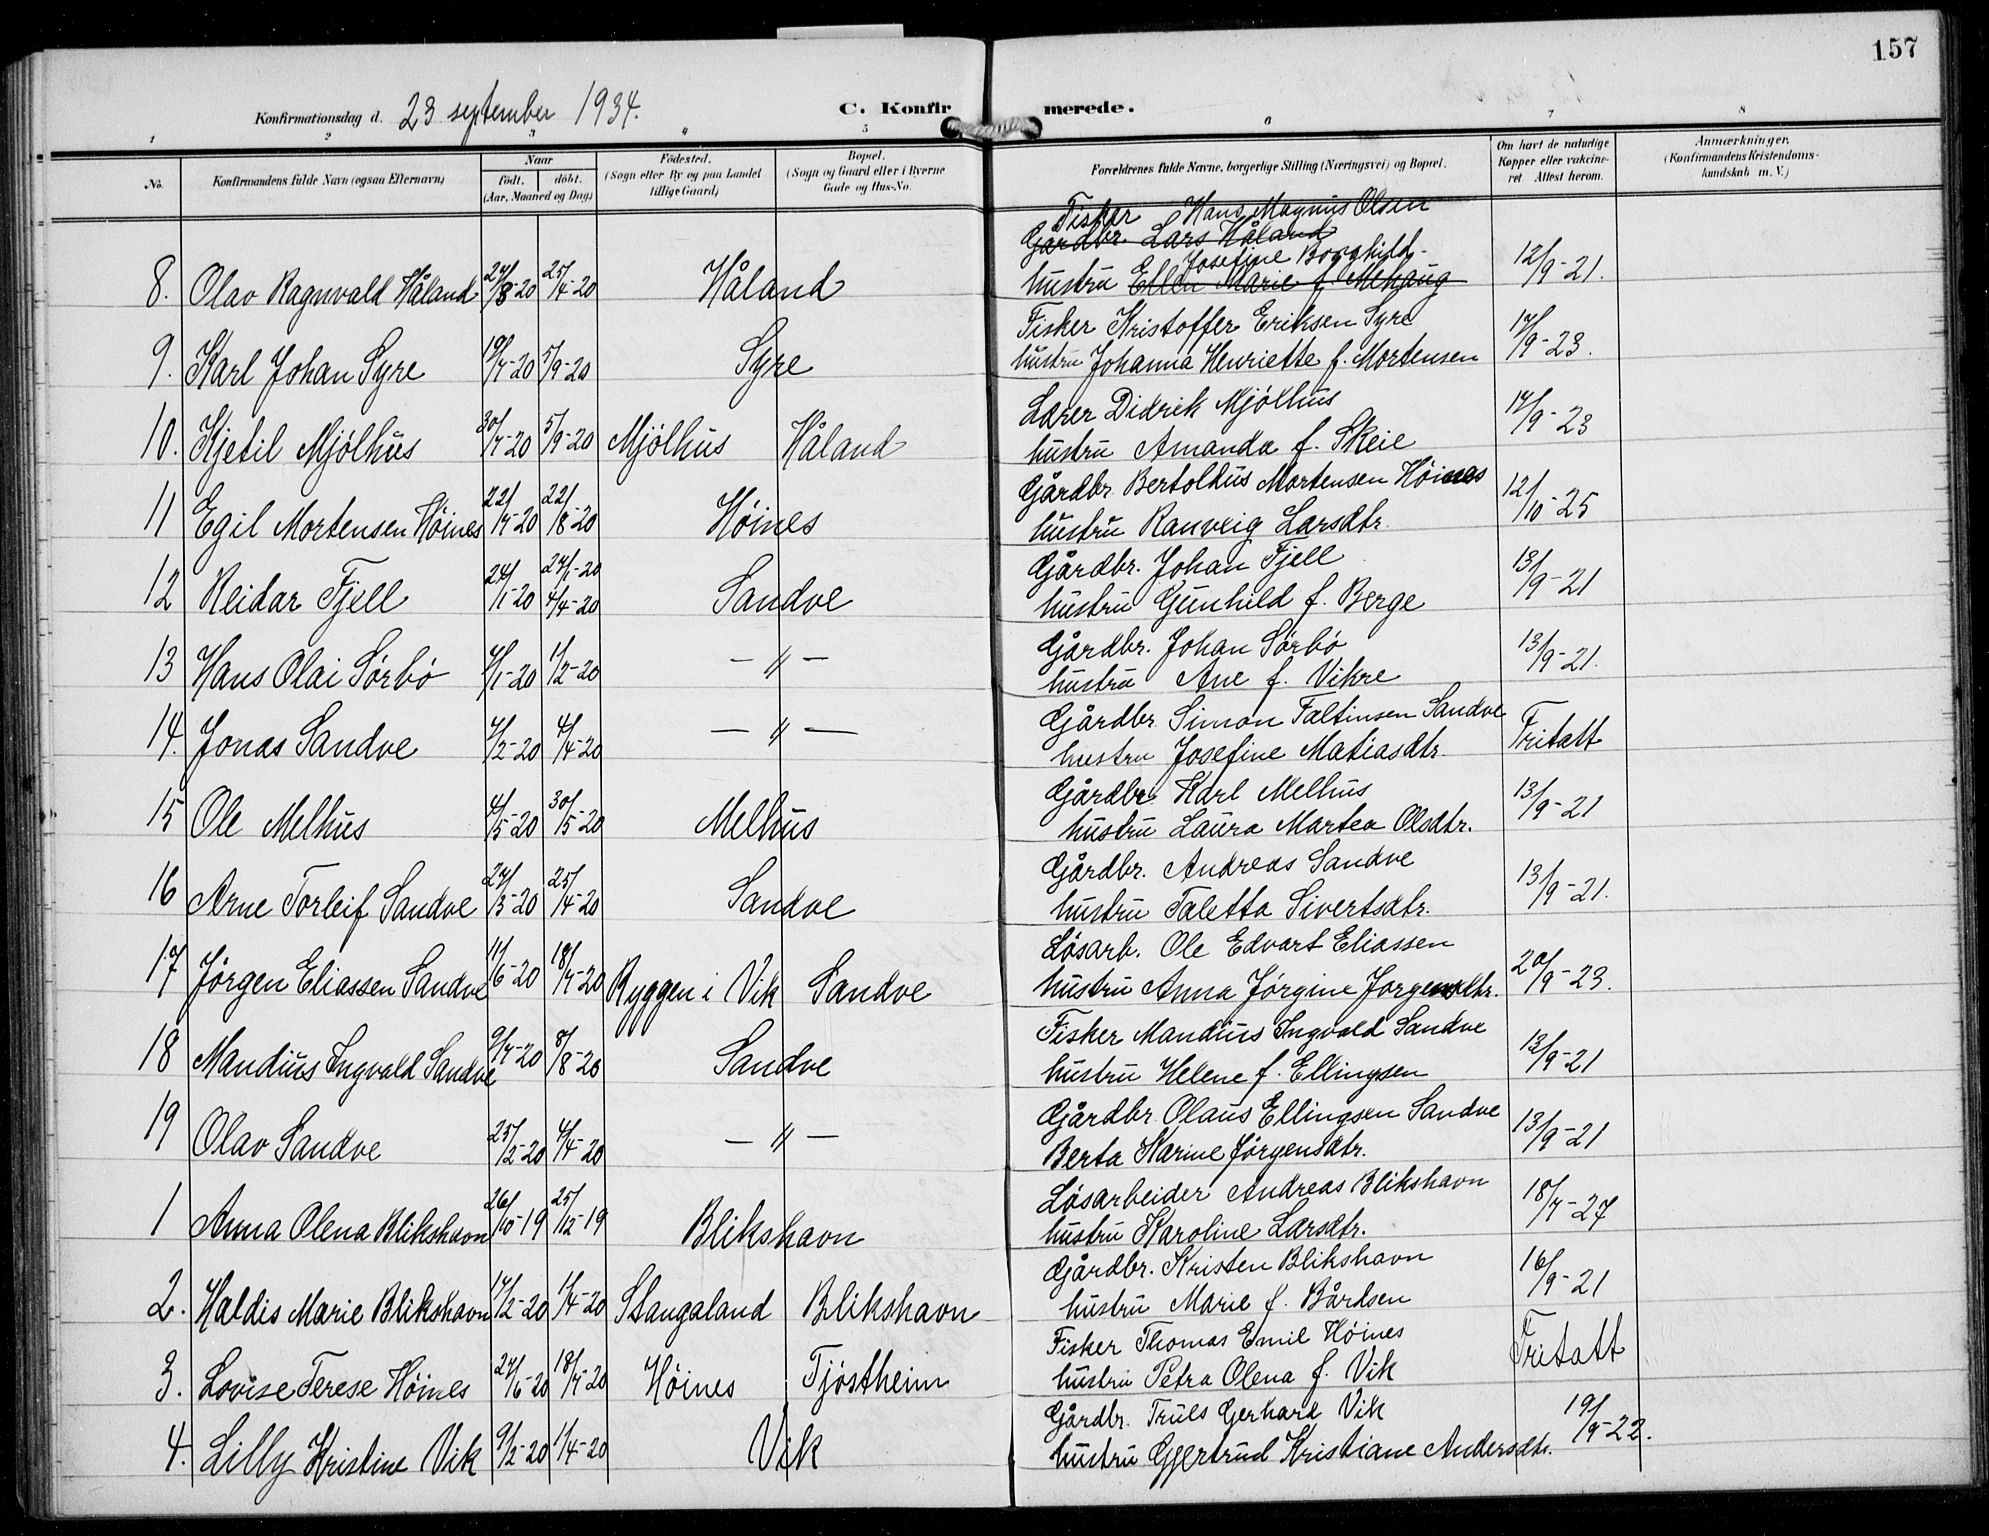 157
Konfirmationsdag d. 23 september 1934.
C. Konfirmerede.
1 2 3 4 5 6 7 8
No.
Konfirmandens fulde Navn (ogsaa Efternavn)
Naar
født. døbt.
(Aar, Maaned og Dag)
Fødested.
(Sogn eller By og paa Landet
tillige Gaard)
Bopæl.
(Sogn og Gaard eller i Byerne
Gade og Hus-No.
Forældrenes fulde Navne, borgerlige Stilling (Næringsvei) og Bopæl.
Om havt de naturlige
Kopper eller vakcine-
ret. Attest herom.
Anmærkninger.
(Konfirmandens Kristendoms-
kundskab m. V.)
Fisker Hans Magnus Olsen
Gårdbr. Lars Håland
Josefine Borghild
8. Olav Ragnvald Håland 27/3-20 25/4-20 Håland hustru Ellen Marie f. Mehaug 12/9-21.
Fisker Kristoffer Eriksen Syre
9. Karl Johan Syre 19/7-20 5/9-20 Syre hustru Johanna Henriette f. Mortensen 17/9-23.
Lærer Didrik Mjølhus
10. Kjetil Mjølhus 30/7-20 5/9-20 Mjølhus Håland hustru Amanda f. Skeie 17/9-23
Gårdbr. Bertoldus Mortensen Høines
11 Egil Mortensen Høines 22/7-20 22/8-20 Høines hustru Ranveig Larsdtr. 12/10-25
Gårdbr. Johan Fjell
12 Reidar Fjell 24/1-20 27/1-20 4/4-20 Sandve hustru Gunhild f. Berge 13/9-21
Gårdbr. Johan Sørbø
13 Hans Olai Sørbø 4/1-20 1/2-20 — " — hustru Ane f. Vikre 13/9-21.
Gårdbr. Simon Faltinsen Sandve
14. Jonas Sandve 4/2-20 4/4-20 — " — hustru Josefine Matiasdtr. Fritatt
Gårdbr. Karl Melhus
15 Ole Melhus 4/5-20 30/5-20 Melhus hustru Laura Martea Olsdtr. 13/9-21
Gårdbr. Andreas Sandve
16 Arne Torleif Sandve 27/3-20 25/4-20 Sandve hustru Taletta Sivertsdtr. 13/9-21.
Løsarb. Ole Edvart Eliassen
17 Jørgen Eliassen Sandve 11/6-20 18/7-20 Ryggen i Vik Sandve hustru Anna Jørgine Jørgensdtr. 20/9-23.
Fisker Mandius Ingvald Sandve
18 Mandius Ingvald Sandve 9/7-20 8/8-20 Sandve hustru Helene f. Ellingsen 13/9-21
Gårdbr. Olaus Ellingsen Sandve
19 Olav Sandve 25/2-20 4/4-20 — " — Berta Karine Jørgensdtr. 13/9-21
Løsarbeider Andreas Blikshavn
1 Anna Olena Blikshavn 26/10-19 25/12-19 Blikshavn hustru Karoline Larsdtr. 18/7-27
Gårdbr. Kristen Blikshavn
2. Haldis Marie Blikshavn 17/2-20 1/4-20 Stangaland Blikshavn hustru Marie f. Bårdsen 16/9-21
Fisker Thomas Emil Høines
3. Lovise Terese Høines 27/6-20 18/7-20 Høines Tjøstheim hustru Petra Olena f. Vik Fritatt
Gårdbr. Truls Gerhard Vik
4. Lilly Kristine Vik 9/2-20 1/4-20 Vik hustru Gjertrud Kristiane Andersdtr. 19/9-22.